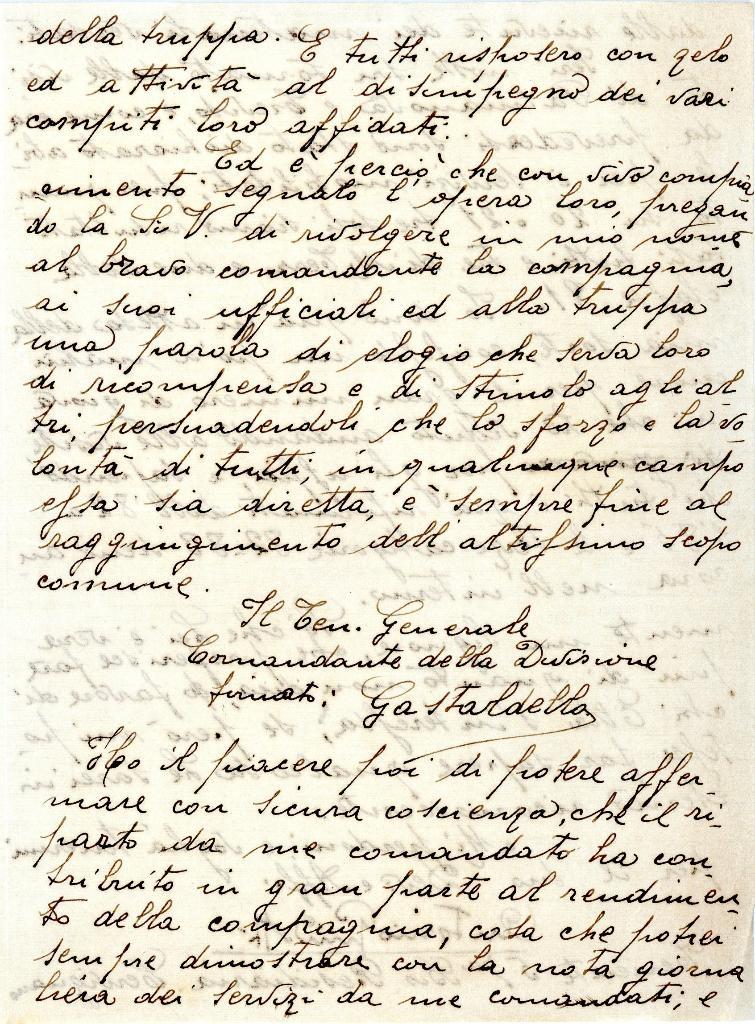 della truppa. E tutti risposero con zelo
ed attività al disimpegno dei vari
compiti loro affidati.
Ed è perciò che con vivo compia
cimento segnalo l'opera loro, pregan
do la S. V. di rivolgere in mio nome
al bravo comandante la compagnia,
ai suoi ufficiali ed alla truppa
una parola di elogio che serva loro
di ricompensa e di stimolo agli al-
tri, persuadendoli che lo sforzo e la vo
lontà di tutti, in qualunque campo
essa sia diretta, è sempre fine al
raggiungimento dell'altissimo scopo
comune.
Il Ten. Generale
Comandante della Divisione
firmato: Gastaldello
Ho il piacere poi di potere affer-
mare con sicura coscienza, che il ri-
parto da me comandato ha con
tribuito in gran parte al rendimen
to della compagnia, cosa che potrei
sempre dimostrare con la nota giorna
liera dei servizi da me comandati; e